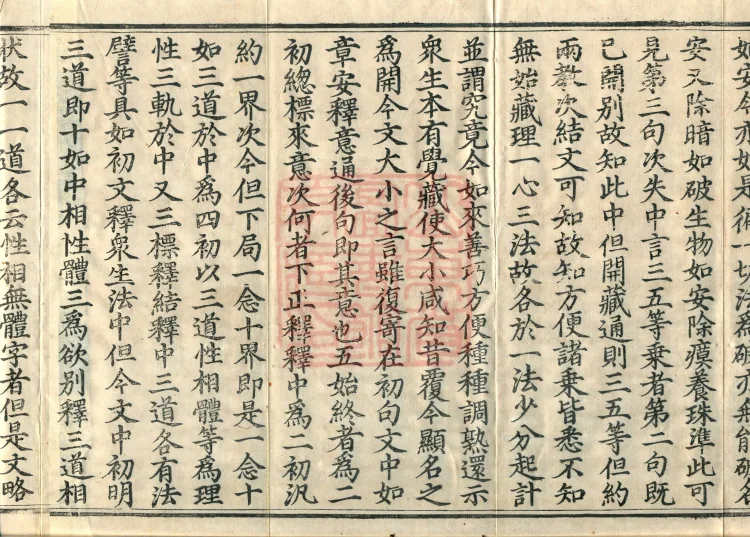 如安今亦如是術一切法為破亦無能破名
安又除暗如破生物如安除瘼養珠準此可
見第三句次失中言三五等乗者第二句既
已開別故知此中但開藏通則三五等但約
兩教次結文可知故知方便諸乗皆悉不知
無始藏理一心三法故各於一法少分起計
並謂究竟今如來善巧方便種種調熟還示
衆生本有覺藏使大小咸知昔覆今顯名之
為開今文大小之言雖復寄在初句文中如
章安釋意通後句即其意也五始終者為二
初總標來意次何者下正釋釋中為二初汎
約一界次今但下局一念十界即是一念十
如三道於中為四初以三道性相體等為理
性三軌於中又三標釋結釋中三道各有法
譬等具如初文釋衆生法中但今文中初明
三道即十如中相性體三為欲別釋三道相
狀故一一道各云性相無體字者但是文略